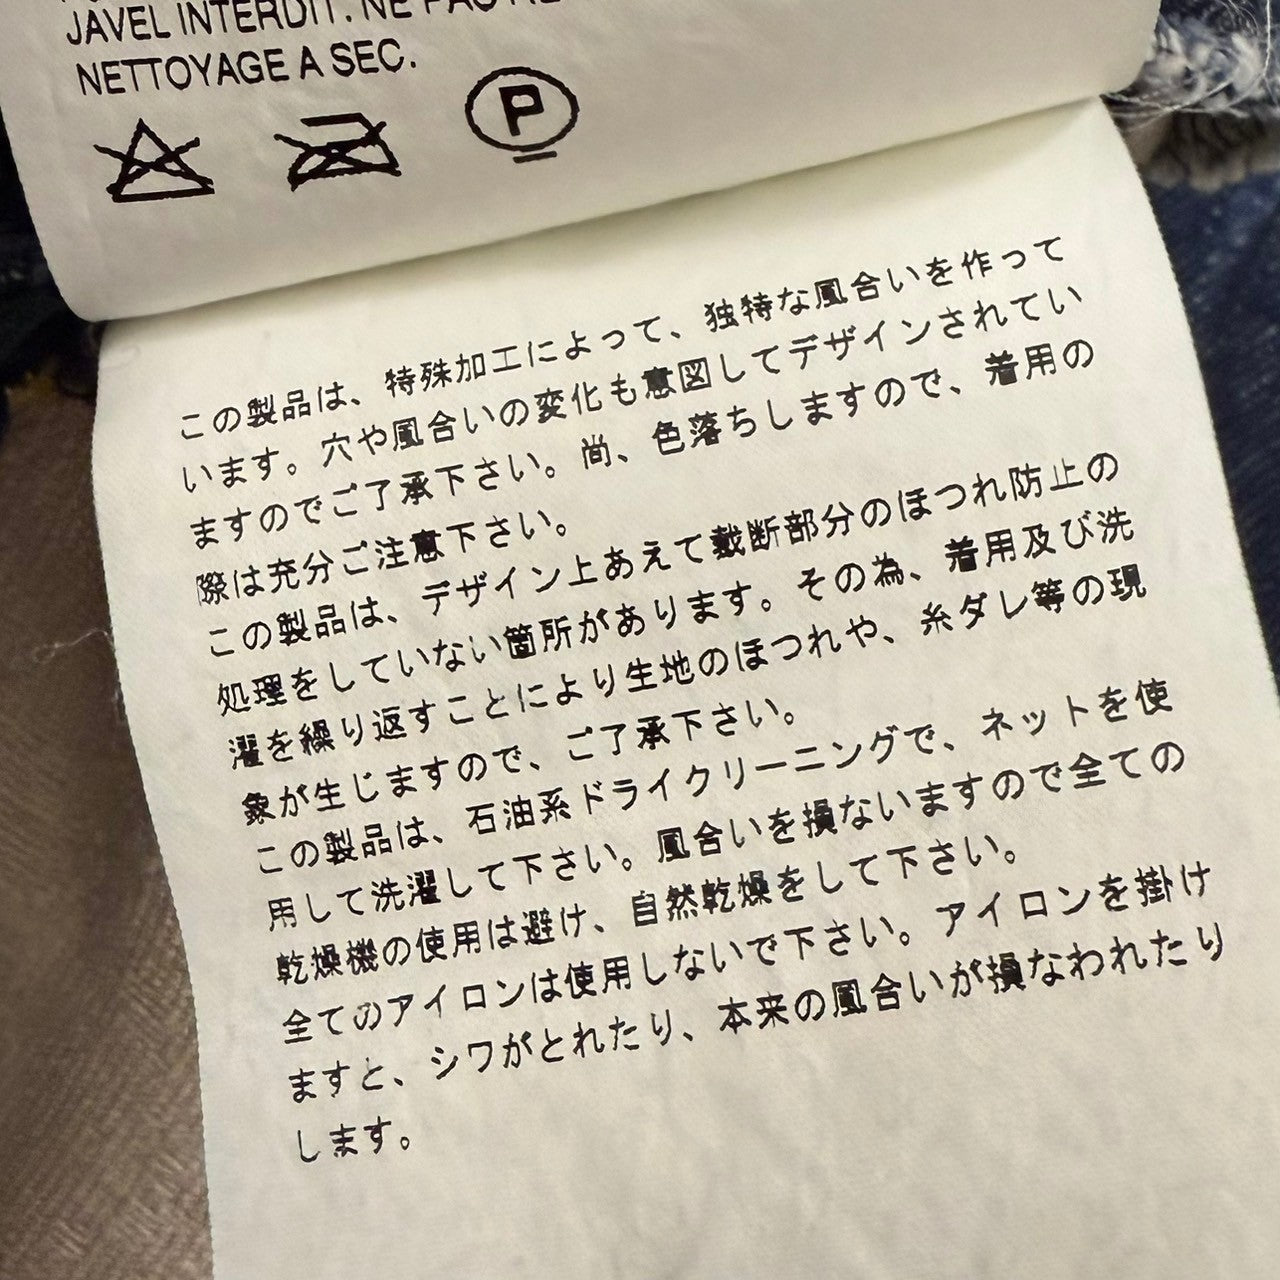 JAVEL INTERDIT. NE PAS RE
NETTOYAGE A SEC.
P
この製品は、特殊加工によって、独特な風合いを作って
います。穴や風合いの変化も意図してデザインされてい
ますのでご了承下さい。尚、色落ちしますので、着用の
際は充分ご注意下さい。
この製品は、デザイン上あえて裁断部分のほつれ防止の
処理をしていない箇所があります。その為、着用及び洗
濯を繰り返すことにより生地のほつれや、糸ダレ等の現
象が生じますので、ご了承下さい。
この製品は、石油系ドライクリーニングで、ネットを使
用して洗濯して下さい。風合いを損ないますので全ての
乾燥機の使用は避け、自然乾燥をして下さい。
全てのアイロンは使用しないで下さい。アイロンを掛け
ますと、シワがとれたり、本来の風合いが損なわれたり
します。